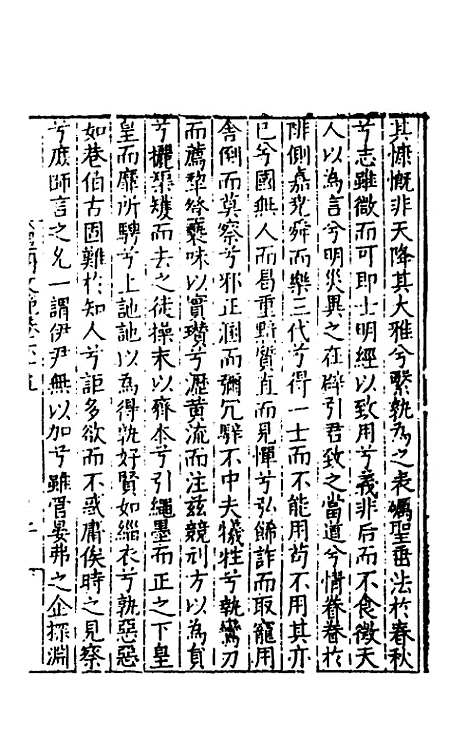 其慷慨非天降其大雅兮繄孰為之表礪聖垂法於春秋
兮志雖微而可即士明經以致用兮義非后而不食徵天
人以為言兮明災異之在辟引君致之當道兮情眷眷於
俳側嘉堯舜而樂三代兮得一士而不能用苟不用其亦
已兮國無人而曷重黜賈直而見憚兮弘餙詐而取寵用
舍倒而莫察兮邪正溷而彌冗騂不中夫犧牲兮孰鸞刀
而薦犂豢藥味以實瓚兮瀝黃流而注茲競刓方以為員
兮擺榘矱而去之徒操末以齊本兮引繩墨而正之下皇
皇而靡所騁兮上訑訑以為得孰好賢如緇衣兮孰惡惡
如巷伯古固難於知人兮詎多欲而不惑庸俟時之見察
兮庶師言之允一謂伊尹無以加兮雖管晏弗之企探淵